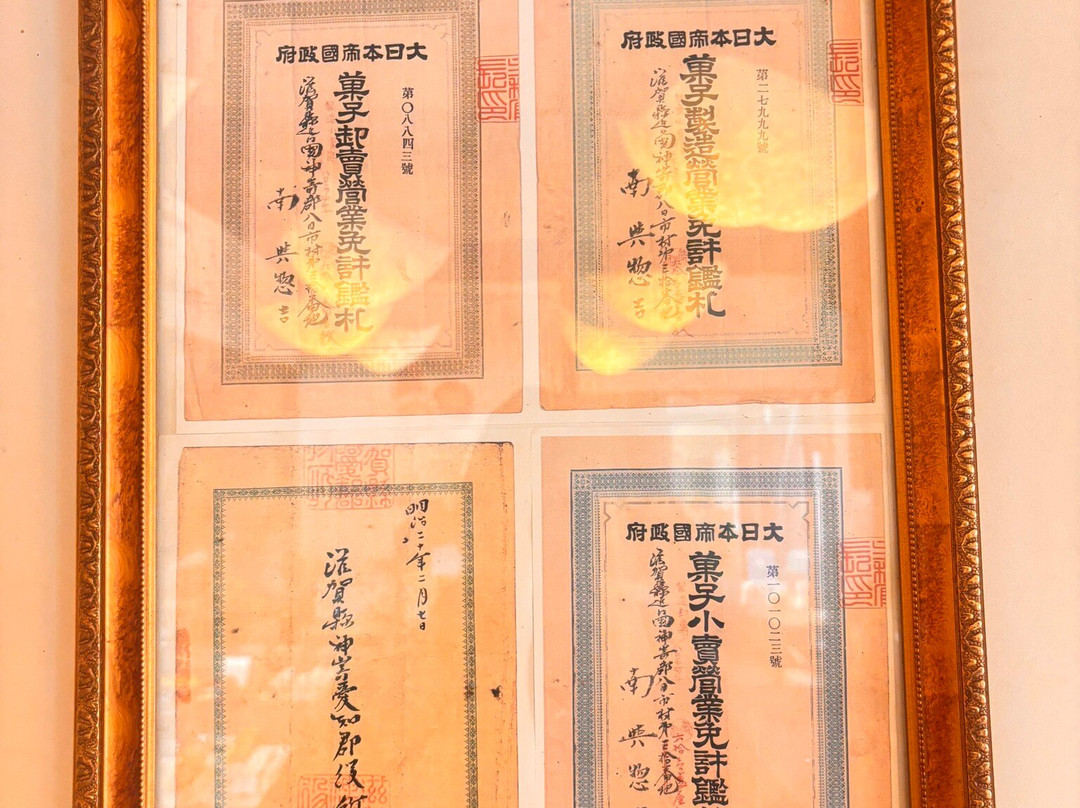 大日本帝國政府
第二七九九九號
菓子製造營業免許鑑札
滋賀縣近江國神崎郡八日市村第三拾番地
南與惣吉
大日本帝國政府
第〇八八四三號
菓子卸賣營業免許鑑札
滋賀縣近江國神崎郡八日市村第三拾番地
南與惣吉
大日本帝國政府
第一〇一〇二三號
菓子小賣營業免許鑑
滋賀縣近江國神崎郡八日市村第三拾番地
南與惣
明治二八年二月七日
滋賀縣神崎愛知郡役所